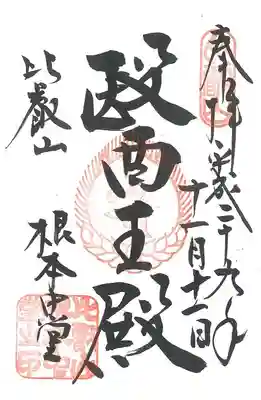 奉拝 平成二十九年
十一月十一日
醫王殿
比叡山
根本中堂